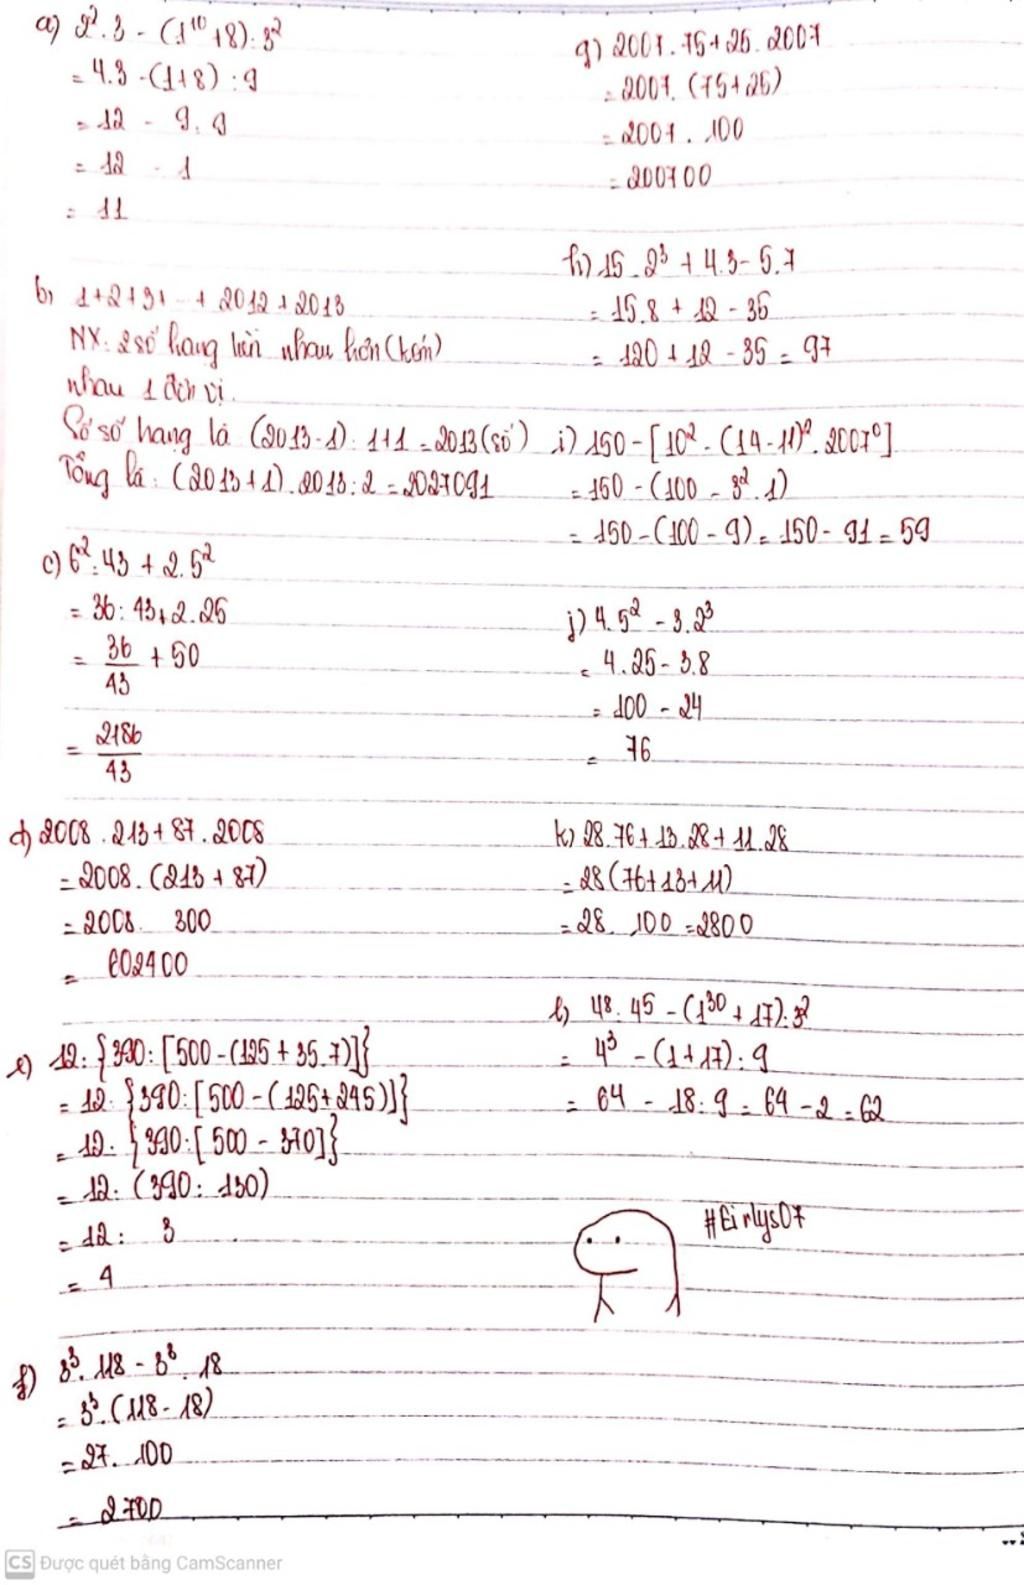 a) 2².3 - (1¹⁰+8):3²
= 4.3 - (1+8) : 9
= 12 - 9 : 9
= 12 - 1
= 11
b) 1+2+3+...+2012+2013
NX: 2 số hạng liền nhau hơn (kém)
nhau 1 đơn vị.
Số số hạng là (2013-1):1+1=2013 (số)
Tổng là: (2013+1).2013:2=2027091
c) 6²:43 + 2.5²
= 36:43+2.25
= 36/43 + 50
= 2186/43
d) 2008.213+87.2008
= 2008.(213+87)
= 2008. 300
= 602400
e) 12:{390:[500-(125+35.7)]}
= 12:{390:[500-(125+245)]}
= 12:{390:[500-370]}
= 12:(390:130)
= 12: 3
= 4
f) 3³.118 - 3³.18
= 3³.(118-18)
= 27.100
= 2700
g) 2007.75+25.2007
= 2007.(75+25)
= 2007.100
= 200700
h) 15.2³+4.3-5.7
= 15.8+12-35
= 120+12-35=97
i) 150-[10²-(14-11)².2007⁰]
= 150-(100-3².1)
= 150-(100-9)=150-91=59
j) 4.5²-3.2³
= 4.25-3.8
= 100-24
= 76
k) 28.76+13.28+11.28
= 28(76+13+11)
= 28.100=2800
l) 48:45-(1³⁰+17):3²
= 4³-(1+17):9
= 64-18:9=64-2=62
#Eirlys07
CS Được quét bằng CamScanner